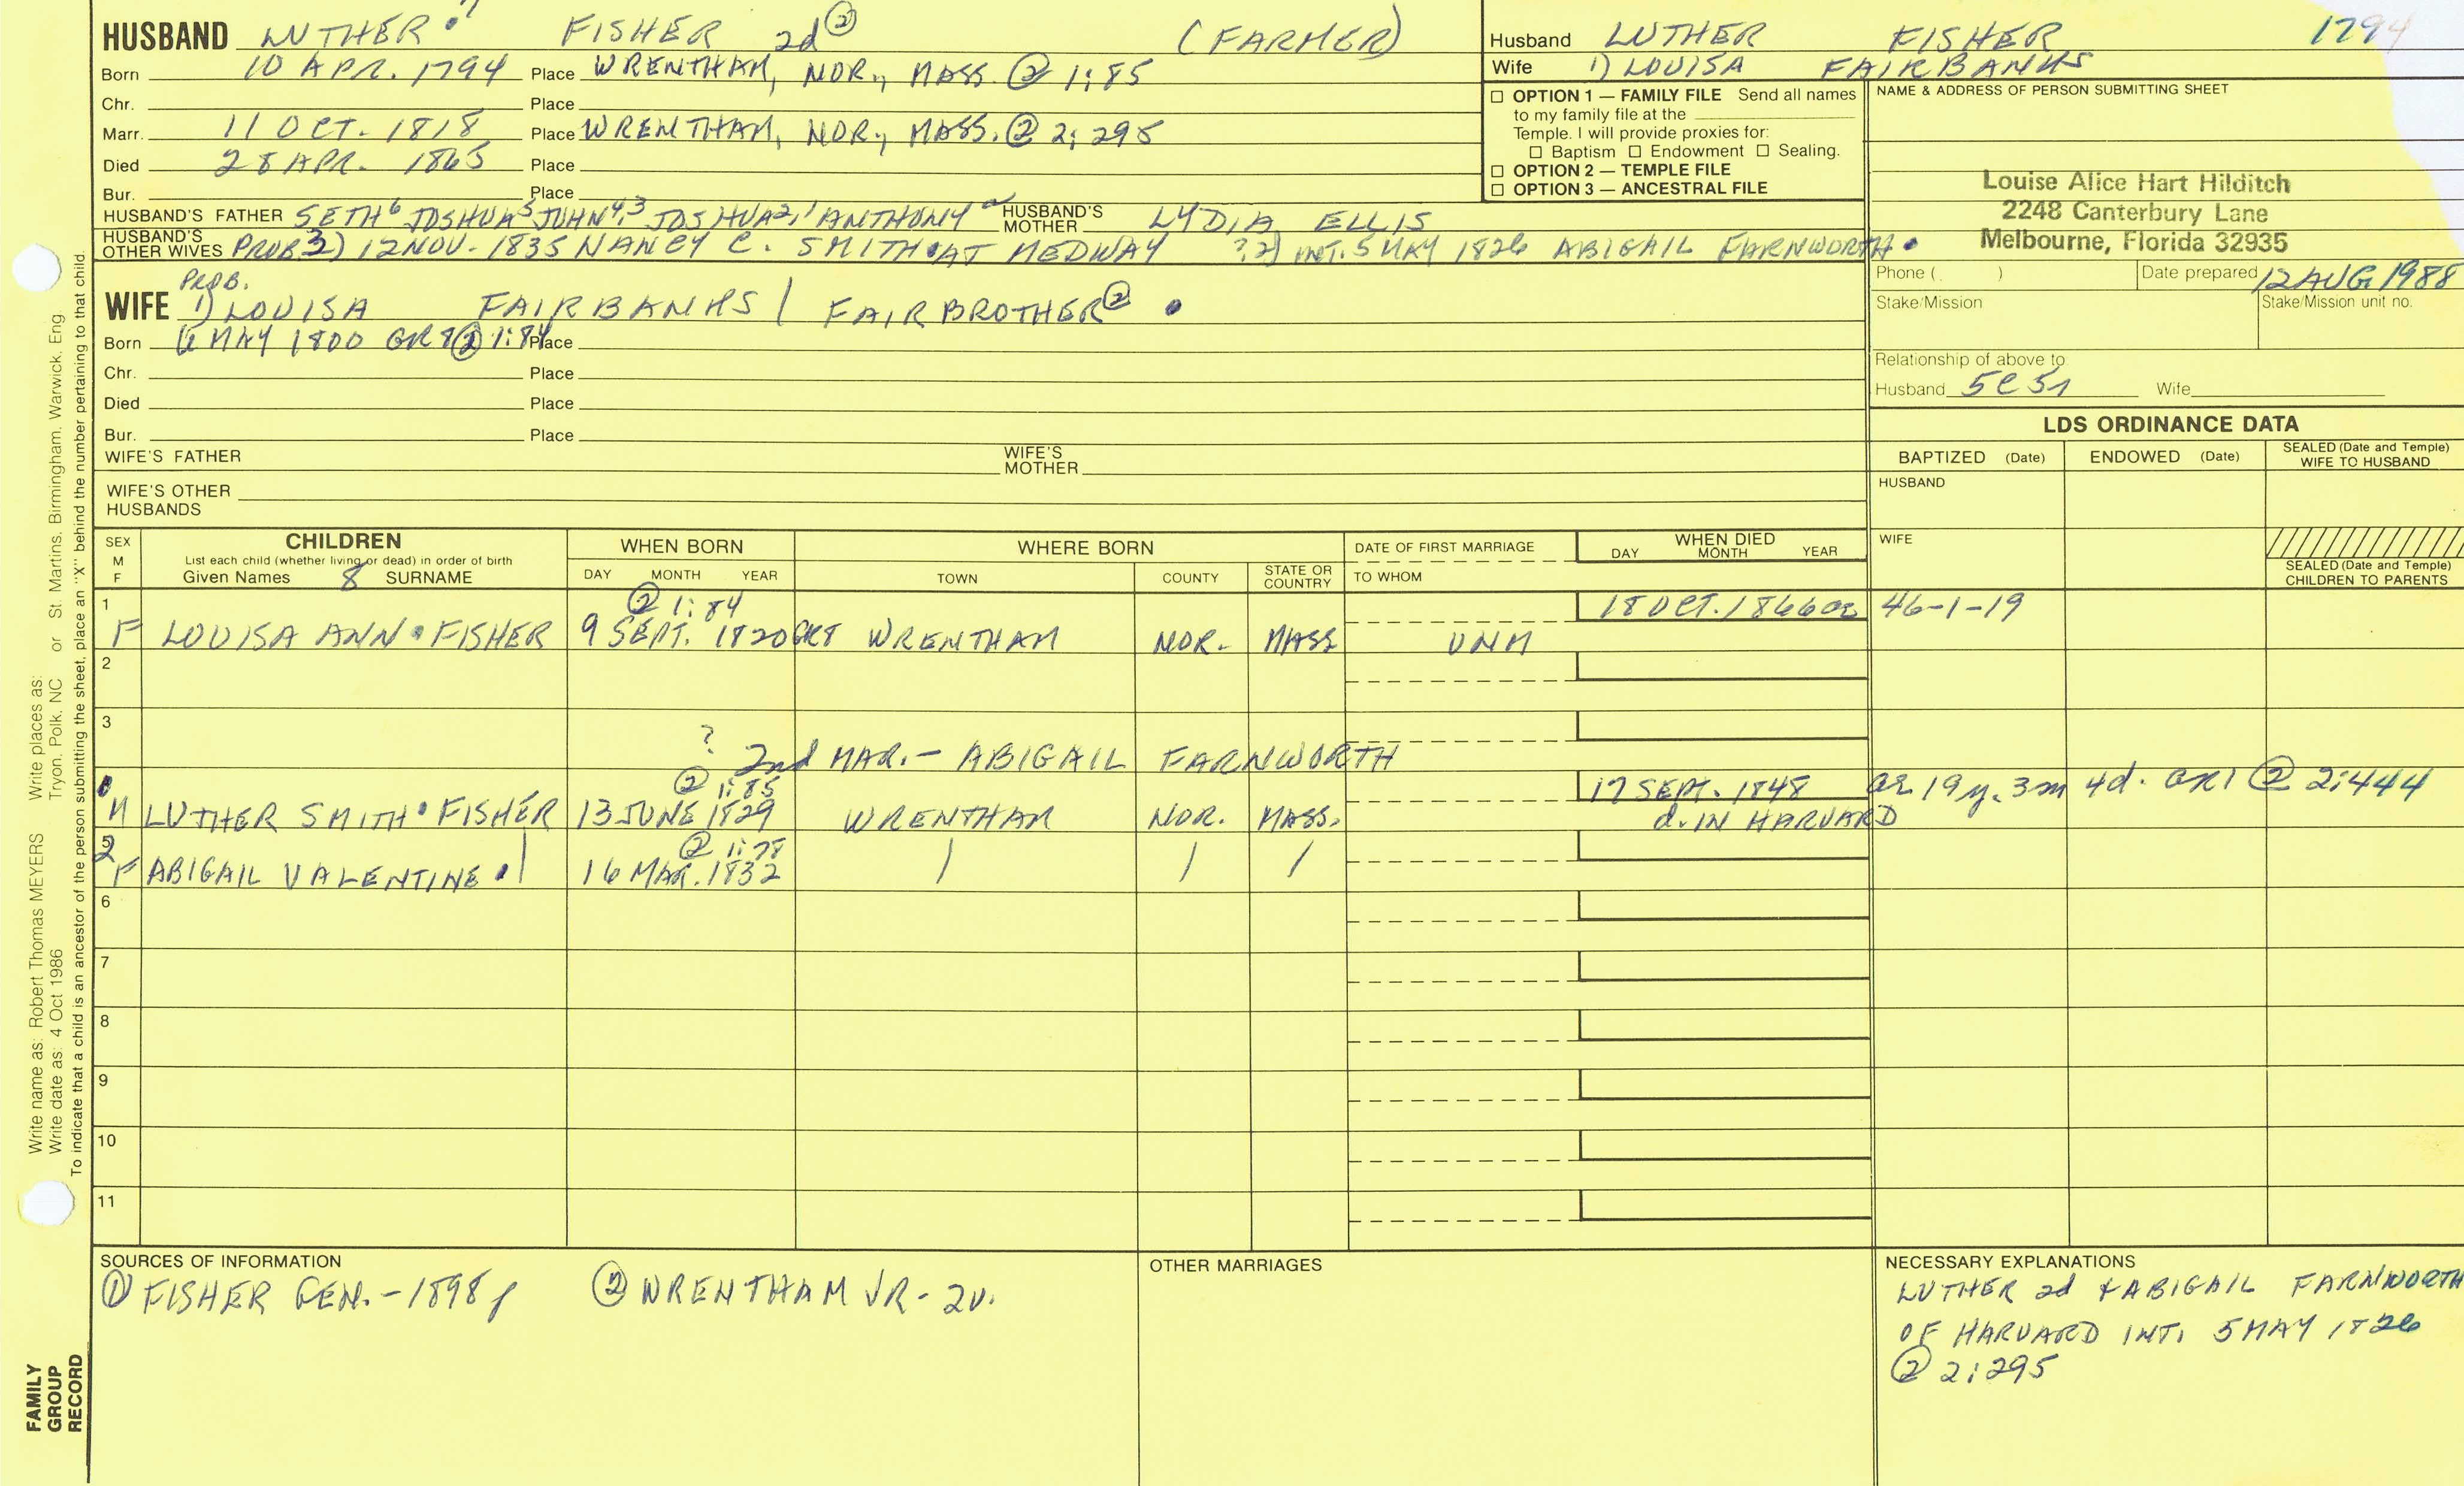 HUSBAND LUTHER 7 FISHER 2d ② (FARMER)
Born 10 APR. 1794 Place WRENTHAM, NOR., MASS. @ 1:85
Chr. Place
Marr. 11 OCT. 1818 Place WRENTHAM, NOR., MASS. ② 2:295
Died 28 APR. 1865 Place
Bur. Place
HUSBAND'S FATHER SETH6 JOSHUA5 JOHN4,3 JOSHUA2,1 ANTHONY HUSBAND'S MOTHER LYDIA ELLIS
HUSBAND'S OTHER WIVES PROB 3) 12 NOV. 1835 NANCY C. SMITH AT MEDWAY ?2) INT. 5 MAY 1826 ABIGAIL FARNWORTH
PROB.
WIFE 1) LOUISA FAIRBANKS / FAIRBROTHER ②
Born 6 MAY 1800 GR8 ② 1:84 Place
Chr. Place
Died Place
Bur. Place
WIFE'S FATHER WIFE'S MOTHER
WIFE'S OTHER HUSBANDS
Husband LUTHER FISHER 1794
Wife 1) LOUISA FAIRBANKS
OPTION 1 — FAMILY FILE Send all names
to my family file at the
Temple. I will provide proxies for:
Baptism Endowment Sealing.
OPTION 2 — TEMPLE FILE
OPTION 3 — ANCESTRAL FILE
NAME & ADDRESS OF PERSON SUBMITTING SHEET
Louise Alice Hart Hilditch
2248 Canterbury Lane
Melbourne, Florida 32935
Phone ( ) Date prepared 12 AUG 1988
Stake/Mission Stake/Mission unit no.
Relationship of above to
Husband 5C5R Wife
LDS ORDINANCE DATA
BAPTIZED (Date) ENDOWED (Date) SEALED (Date and Temple) WIFE TO HUSBAND
HUSBAND
WIFE
SEALED (Date and Temple) CHILDREN TO PARENTS
SEX M F
CHILDREN
List each child (whether living or dead) in order of birth
Given Names 8 SURNAME
WHEN BORN
DAY MONTH YEAR
WHERE BORN
TOWN COUNTY STATE OR COUNTRY
DATE OF FIRST MARRIAGE
TO WHOM
WHEN DIED
DAY MONTH YEAR
1 ② 1:84 18 OCT. 1866 46-1-19
F LOUISA ANN FISHER 9 SEPT. 1820 GR8 WRENTHAM NOR. MASS UNM
2
3
? 2nd MAR.- ABIGAIL FARNWORTH
② 1:85 17 SEPT. 1848 ae 19y. 3m 4d. GR1 @ 2:444
M LUTHER SMITH FISHER 13 JUNE 1829 WRENTHAM NOR. MASS. d. IN HARVARD
5 2 ② 1:78
F ABIGAIL VALENTINE 16 MAR. 1832
6
7
8
9
10
11
SOURCES OF INFORMATION
① FISHER GEN.-1898 ② WRENTHAM VR- 2v.
OTHER MARRIAGES
NECESSARY EXPLANATIONS
LUTHER 2d & ABIGAIL FARNWORTH
OF HARVARD INT. 5 MAY 1826
② 2:295
Write name as: Robert Thomas MEYERS Write places as:
Write date as: 4 Oct 1986 Tryon, Polk, NC or St. Martins, Birmingham, Warwick, Eng
To indicate that a child is an ancestor of the person submitting the sheet, place an "X" behind the number pertaining to that child.
FAMILY
GROUP
RECORD